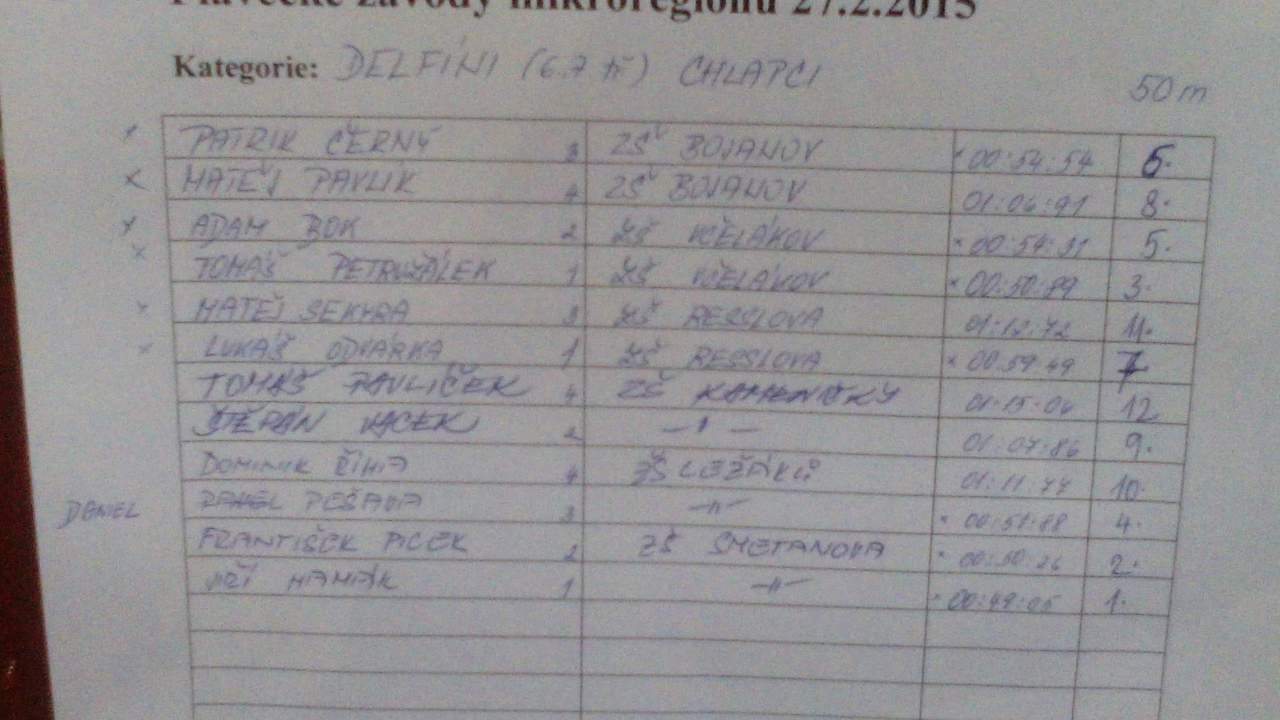 Plavecké závody mikroregionu 27.2.2015
Kategorie: DELFÍNI (6.7 tř) CHLAPCI
50 m
x PATRIK ČERNÝ 3 ZŠ BOJANOV x 00:54:54 6.
x MATĚJ PAVLÍK 4 ZŠ BOJANOV 01:06:91 8.
x ADAM BOK 2 ZŠ VČELÁKOV x 00:54:31 5.
x TOMÁŠ PETRUŽÁLEK 1 ZŠ VČELÁKOV x 00:50:89 3.
x MATĚJ SEKYRA 3 ZŠ RESSLOVA 01:12:72 11.
x LUKÁŠ ODVÁRKA 1 ZŠ RESSLOVA x 00:59:49 7
TOMÁŠ PAVLÍČEK 4 ZŠ KAMENIČKY 01:15:04 12
ŠTĚPÁN VACEK 2 —"— 01:07:86 9.
DOMINIK ŘÍHA 4 ZŠ LEŽÁKŮ 01:11:77 10.
DANIEL PAVEL PEŠAVA 3 —"— x 00:51:88 4.
FRANTIŠEK PICEK 2 ZŠ SMETANOVA x 00:50:26 2.
JIŘÍ HANIÁK 1 —"— x 00:49:05 1.